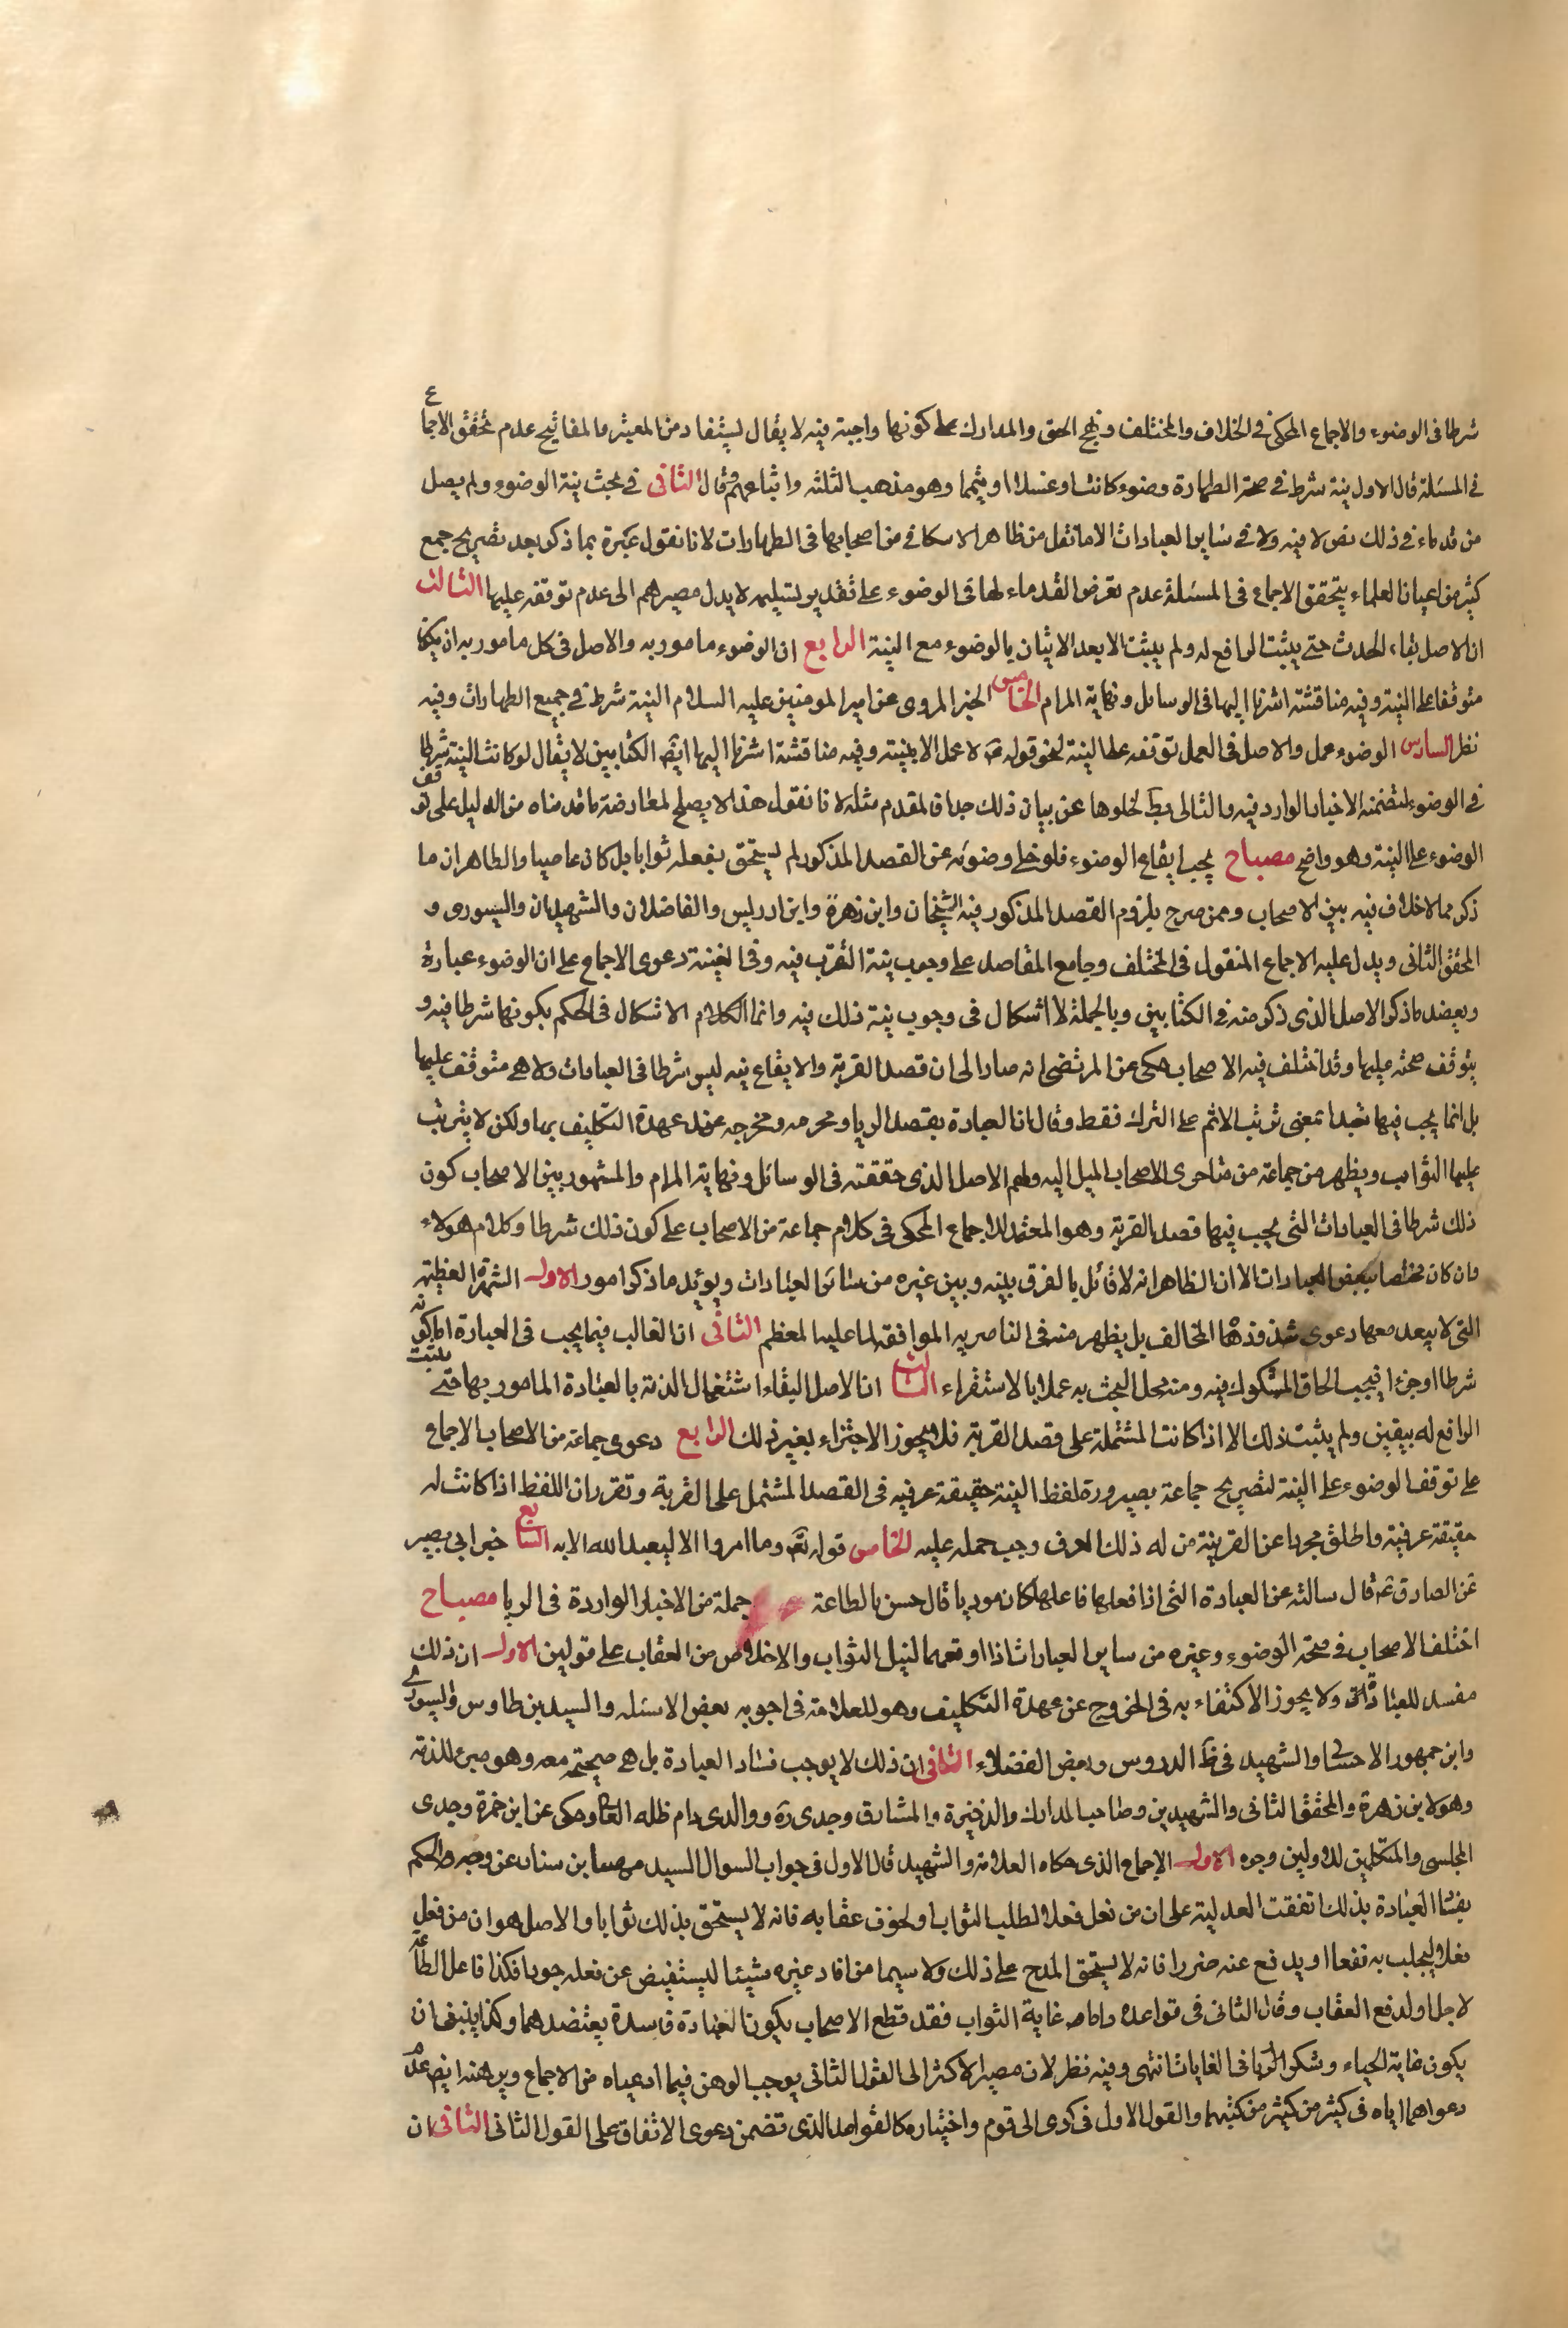 شرطا فى الوضوء والاجماع المحكى فى الخلاف والمختلف ونهج الحق والمدارك على كونها واجبة فيه لا يقال يستفاد من المعتبر والمفاتيح عدم تحقق الاجماع
فى المسئلة قال الاول نية شرط فى صحة الطهارة وضوء كانت او غسلا او تيمما وهو مذهب الثلثه واتباعهم وقال الثانى فى بحث نية الوضوء ولم يصل
من قدماء فى ذلك نص لا فيه ولا فى ساير العبادات الا ما نقل من ظاهر الاسكافى من اصحابها فى الطهارات لانا نقول غيره بما ذكر بعد تصريح جمع
كثير من اعيان العلماء بتحقق الاجماع فى المسئلة عدم تعرض القدماء لها فى الوضوء على تقدير تسليمه لا يدل مصيرهم الى عدم توقفه عليها الثالث
ان الاصل بقاء الحدث حتى يثبت الرافع له ولم يثبت الا بعد الاتيان بالوضوء مع النية الرابع ان الوضوء مامور به والاصل فى كل مامور به ان يكون
متوقفا على النية وفيه مناقشة اشرنا اليها فى الوسائل ونهاية المرام الخامس الخبر المروى عن امير المومنين عليه السلام النية شرط فى جميع الطهارات وفيه
نظر السادس الوضوء عمل والاصل فى العمل توقفه على النية لنحو قوله ص لا عمل الا بنيته وفيه مناقشة اشرنا اليها ايض الكتابين لا يقال لو كانت النية شرطا
فى الوضوء لتضمنه الاخبار الواردة فيه والتالى بط لخلوها عن بيان ذلك جدا فالمقدم مثله لانا نقول هذا لا يصلح لمعارضة ما قدمناه من الدليل على توقف
الوضوء على النية وهو واضح مصباح يجب ايقاع الوضوء فلو خلى وضوئه عن القصد المذكور لم يستحق بفعله ثوابا بل كان عاصيا والظاهر ان ما
ذكر مما لا خلاف فيه بين الاصحاب وممن صرح بلزوم القصد المذكور فيه الشيخان وابن زهرة وابن ادريس والفاضلان والشهيدان والسيورى و
المحقق الثانى ويدل عليه الاجماع المنقول فى المختلف وجامع المقاصد على وجوب نية التقرب فيه وفى الغنية دعوى الاجماع على ان الوضوء عبادة
ويعضد ما ذكر الاصل الذى ذكر منه فى الكتابين وبالجملة لا اشكال فى وجوب نية ذلك فيه وانما الكلام الاشكال فى الحكم بكونها شرطا فيه و
يتوقف صحته عليها وقد اختلف فيه الاصحاب حكى عن المرتضى انه صار الى ان قصد القربة والايقاع فيه ليس شرطا فى العبادات ولا هى متوقف عليها
بل انما يجب فيها تعبدا بمعنى ترتب الاثم على الترك فقط وقال ان العبادة بقصد الريا ومحرمه ومخرجه عن عهدة التكليف بها ولكن لا يترتب
عليها الثواب ويظهر من جماعة من متاخرى الاصحاب الميل اليه ولهم الاصل الذى حققته فى الوسائل ونهاية المرام والمشهور بين الاصحاب كون
ذلك شرطا فى العبادات التى يجب فيها قصد القربة وهو المعتمد للاجماع المحكى فى كلام جماعة من الاصحاب على كون ذلك شرطا وكلام هولاء
وان كان مختصا ببعض العبادات الا ان الظاهر انه لا قائل بالفرق بينه وبين غيره من سائر العبادات ويؤيد ما ذكر امور الاول الشهرة العظيمة
التى لا يبعد معها دعوى شذوذ المخالف بل يظهر منه فى الناصريه الموافقة لما عليه المعظم الثانى ان الغالب فيما يجب فى العبادة اما كونه
شرطا او جزءا فيجب الحاق المشكوك فيه ومنه محل البحث به عملا بالاستقراء الثالث ان الاصل البقاء اشتغال الذمة بالعبادة المامور بها حتى يثبت
الرافع له بيقين ولم يثبت ذلك الا اذا كانت المشتملة على قصد القربة فلا يجوز الاجتزاء بغير ذلك الرابع دعوى جماعة من الاصحاب الاجماع
على توقف الوضوء على النية لتصريح جماعة بصيرورة لفظ النية حقيقة عرفيه فى القصد المشتمل على القربة وتقرر ان اللفظ اذا كانت له
حقيقة عرفية واطلق مجردا عن القرينة من له ذلك العرف وجب حمله عليه الخامس قوله تع وما امروا الا ليعبد الله الايه السابع خبر ابى بصير
عن الصادق ع قال سالته عن العبادة التى اذا فعلها فاعلها كان موديا قال حسن بالطاعة جملة من الاخبار الواردة فى الريا مصباح
اختلف الاصحاب فى صحة الوضوء وغيره من ساير العبادات اذا اوقعها لنيل الثواب والاخلاص من العقاب على قولين الاول ان ذلك
مفسد للعبادة ولا يجوز الاكتفاء به فى الخروج عن عهدة التكليف وهو للعلامة فى اجوبه بعض الاسئله والسيد بن طاوس والسيورى
وابن جمهور الاحسائى والشهيد فى ظ الدروس وبعض الفضلاء الثانى ان ذلك لا يوجب فساد العبادة بل هى صحيحة معه وهو مبرئ للذمة
وهو لابن زهرة والمحقق الثانى والشهيدين وصاحب المدارك والذخيرة والمشارق وجدى ره ووالدى دام ظله العالى وحكى عن ابن حمزة وجدى
المجلسى والمتكلمين للاولين وجوه الاول الاجماع الذى حكاه العلامة والشهيد قال الاول فى جواب السوال السيد مهنا بن سنان عن وجه الحكم
بفساد العبادة بذلك اتفقت العدلية على ان من فعل فعلا لطلب الثواب او لخوف عقابه فانه لا يستحق بذلك ثوابا والاصل هو ان من فعل
فعلا ليجلب به نفعا او يدفع عنه ضررا فانه لا يستحق المدح على ذلك ولا سيما من افاد غيره شيئا ليستفيض عن فعله جودا فكذا فاعل الطاعة
لاجل او لدفع العقاب وقال الثانى فى قواعده واما غاية الثواب فقد قطع الاصحاب بكون العبادة فاسدة بقصدهما وكذا ينبغى ان
يكون غاية الحياء وشكر الريا فى الغايات انتهى وفيه نظر لان مصير الاكثر الى القول الثانى يوجب الوهن فيما ادعياه من الاجماع ويوهنه ايض عدم
دعواهما اياه فى كثير من كتبهما والقول الاول فى كرى الى قوم واختياره كالقواعد الذى تضمن دعوى الاتفاق على القول الثانى الثانى ان